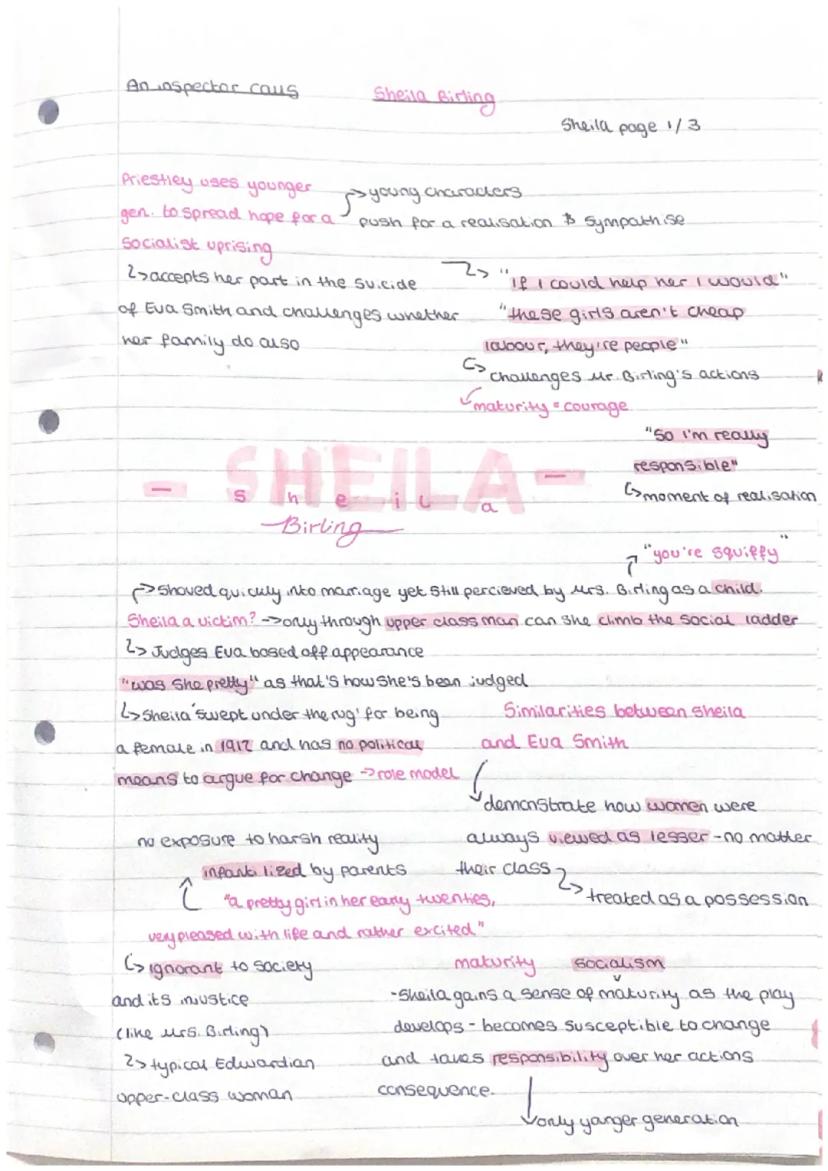 An inspector calls
Sheila Birling
Sheila page 1/3
Priestley uses younger
gen. to spread hope for a
socialist uprising
↳ accepts her part in the suicide
of Eva Smith and challenges whether
her family do also
→ young characters
push for a realisation & sympathise
↳ "If I could help her I would"
"these girls aren't cheap
labour, they're people"
↳ challenges Mr. Birling's actions
maturity = courage
"So I'm really
responsible"
↳ moment of realisation
- SHEILA -
Sheila
Birling
"you're squiffy"
→ shoved quickly into marriage yet still percieved by Mrs. Birling as a child.
Sheila a victim? → only through upper class man can she climb the social ladder
↳ Judges Eva based off appearance
"was she pretty" as that's how she's been judged
↳ Sheila 'swept under the rug' for being
a female in 1912 and has no political
means to argue for change → role model
Similarities between Sheila
and Eva Smith
↓ demonstrate how women were
always viewed as lesser - no matter
their class
↳ treated as a possession
no exposure to harsh reality
infantilized by parents
"a pretty girl in her early twenties,
very pleased with life and rather excited"
↳ ignorant to society
and its injustice
(like Mrs. Birling)
↳ typical Edwardian
upper-class woman
maturity socialism
- Sheila gains a sense of maturity as the play
develops - becomes susceptible to change
and takes responsibility over her actions
consequence.
↓ only yanger generation